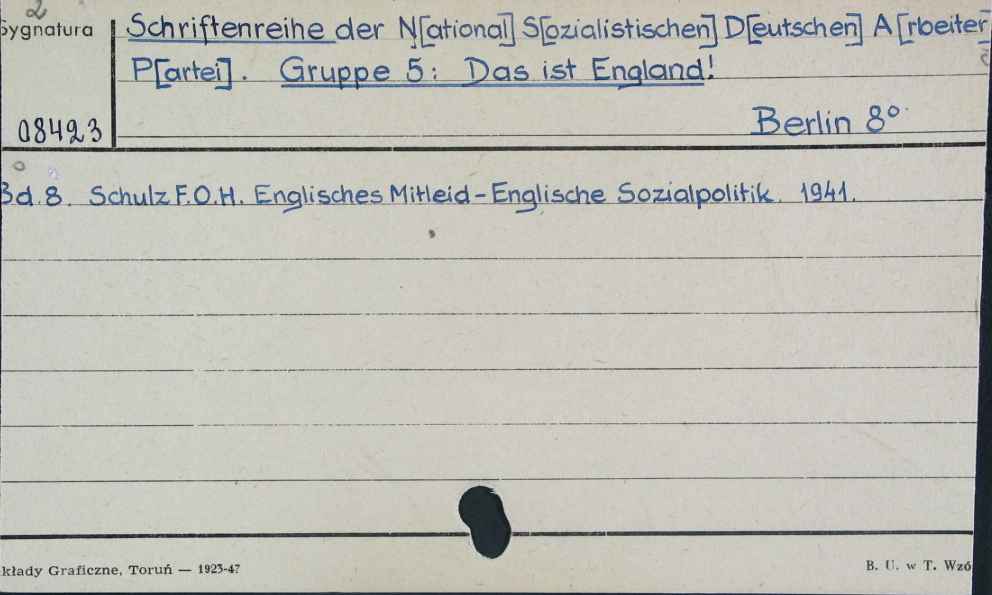 2
Sygnatura
Schriftenreihe der N[ational] S[ozialistischen] D[eutschen] A[rbeiter]
P[artei]. Gruppe 5: Das ist England!
08423
Berlin 8°
Bd. 8. Schulz F.O.H. Englisches Mitleid - Englische Sozialpolitik. 1941.
kłady Graficzne, Toruń — 1923-47
B. U. w T. Wzó